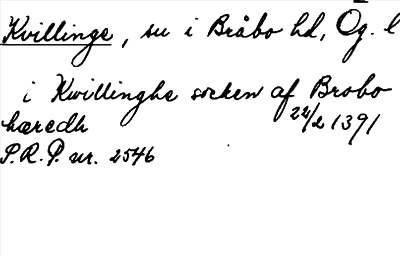 Kvillinge, sn i Bråbo hd, Ög. l
i Kwillinghe socken af Brobo
hæredh 22/2 1391
P.R.P. nr. 2546